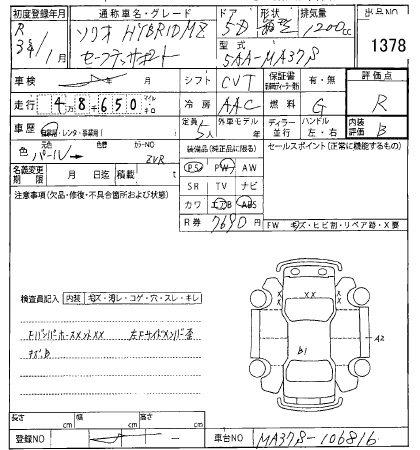 初度登録年月 通称車名・グレード ドア 形状 排気量 出品NO
R 3年/1月 ソリオ HYBRID MZ セーフティサポート 5D 1200cc 1378
型式 5AA-MA37S
車検 年 月 シフト CVT 保証書 有・無 評価点
走行 4万8千650 マイル キロ 冷房 AAC 燃料 G R
車歴 自家用・レンタ・事業用 定員 5人 外車モデル 年 ディーラー 並行 ハンドル 左・右 内装評価 B
色 元色 パール 色替 カラーNO ZVR 装備品(純正品に限る) セールスポイント(正常に機能するもの)
名義変更期限 月 日迄 積載 t PS PW AW
注意事項(欠品・修復・不具合箇所および状態) SR TV ナビ
カワ エアB ABS
R券 7690円 FW キズ・ヒビ割・リペア跡・X要
検査員記入 内装 キズ・汚レ・コゲ・穴・スレ・キレ
XX
X X
FバンパーホースメントXX 左Fサイドメンバー歪
A2
B1
長さ cm 幅 cm 高さ cm
登録NO 車台NO MA37S-106816